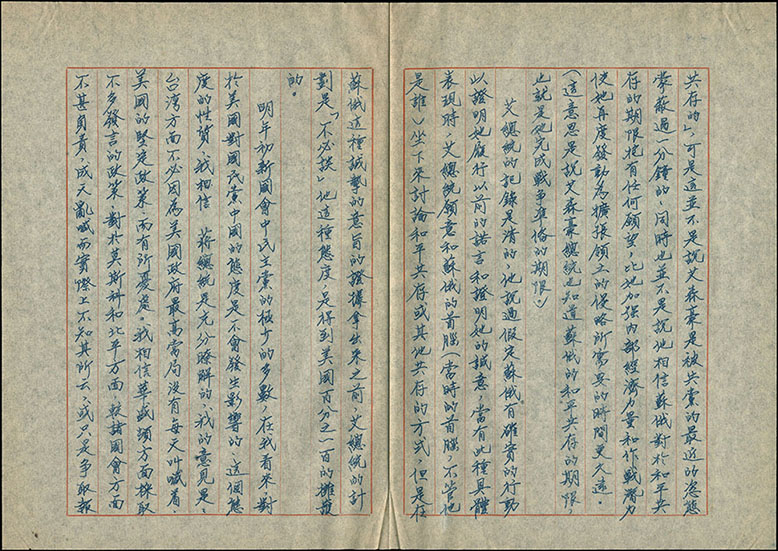 共存的」，可是這並不是說艾森豪是被共黨的最近的姿態
蒙蔽過一分鐘的，同時也並不是說他相信蘇俄對於和平共
存的期限抱有任何願望，比他加強內部經濟力量和作戰潛力
使他再度發動為擴張領土的侵略所需要的時間更久遠。
（這意思是說艾森豪總統也知道蘇俄的和平共存的期限，
也就是他完成戰爭準備的期限。）
艾總統的記錄是清的，他說過假定蘇俄有確實的行動
以證明他履行以前的諾言和證明他的誠意，當有此種具體
表現時，艾總統願意和蘇俄的首腦（當時的首腦，不管他
是誰）坐下來討論和平共存或其他共存的方式，但是在
蘇俄這種誠摯的意旨的證據拿出來之前，艾總統的計
劃是「不必談」他這種態度，是得到美國百分之一百的擁護
的。
明年初新國會中民主黨的極少的多數，在我看來，對
於美國對國民黨中國的態度是不會發生影響的，這個態
度的性質，我相信 蔣總統是充分瞭解的，我的意見是，
台灣方面不必因為美國政府最高當局沒有每天叫喊着
美國的堅定政策，而有所憂慮。我相信華盛頓方面採取
不多發言的政策，對於莫斯科和北平方面，較諸國會方面
不甚負責，成天亂喊而實際上不知其所云，或只是爭取報